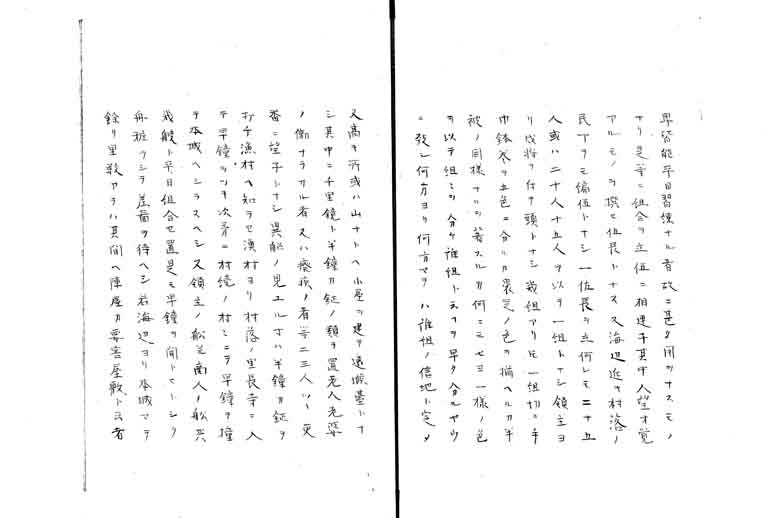 卑皆能平日習練ナル者故ニ甚タ用ヲナスモノ
ナリ是等ニ組合ヲ立伍ニ相連子其中人望才覚
アルモノヲ撰ヒ伍長トナス又海辺近キ村落ノ
民丁ヲモ備伍トナシ一伍長ヲ立何レモ二十五
人或ハ二十人十五人ヲ以テ一組トナシ領主ヨ
リ成将ヲ付ケ頭トナシ幾組アリ比一組切ニ手
巾鉢衣ヲ五色ニ分ルカ裏芝ノ色ノ揃ヘルカ半
被ノ同様ナルヲ着スルカ何ニモセヨ一様ノ色
ヲ以テ組ミヲ分ケ誰組ト云フヲ早ク分ルヤウ
ニ致シ何方ヨリ何方マテハ誰組ノ信地ト定メ
又高キ所或ハ山ナトヘ小屋ヲ建テ遠候基トナ
シ其中ニ千里鏡ト半鐘カ鉦ノ類ヲ置老人老婆
ノ働ナラサル者又ハ癈疾ノ者等ニ三人ツヽ更
番ニ望子シナシ異船ノ見ユルトキハ半鐘カ鉦ヲ
打チ漁村ヘ知ラセ漁村ヨリ村落ノ里長寺ニ入
テ早鐘ヲツキ次第ニ村境ノ村ミニテ早鐘ヲ撞
テ本城ヘシラスヘシ又領主ノ船芝商人ノ船共
幾艘ト平日組合セ置是モ早鐘ヲ聞トヒトシク
舟粧ヲシテ差啚ヲ待ヘシ若海辺ヨリ本城マテ
餘リ里数アラハ其間ヘ陣屋カ要害屋敷ト云者